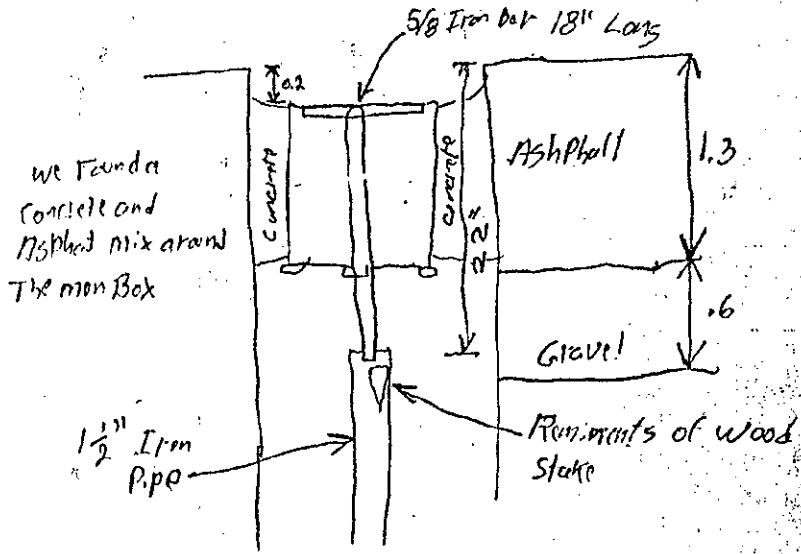 5/8 Iron bar 18" Long
0.2
we Found a
Concrete and
Asphal mix around
The mon Box
Concrete
Concrete
22"
AshPhall
1.3
.6
Gravel
1 1/2" Iron
Pipe
Remiments of wood
Stake